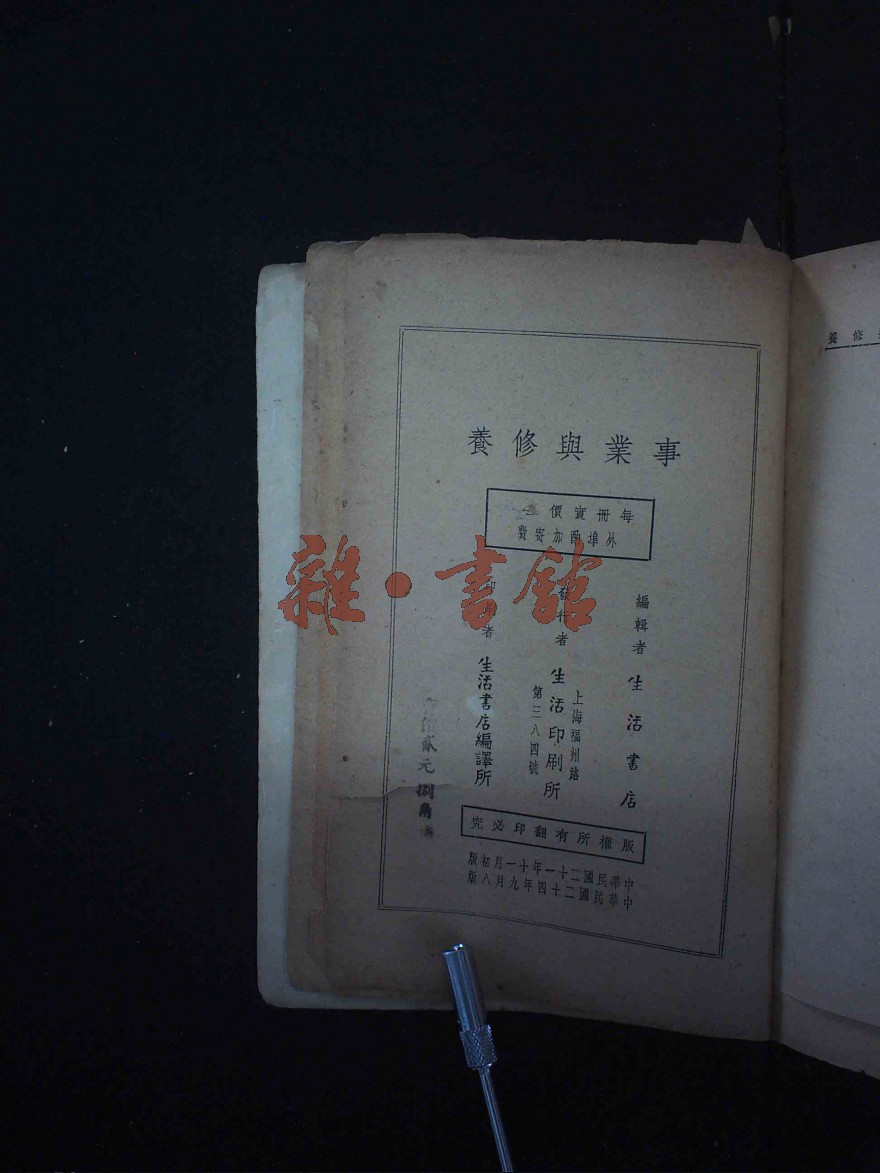 事業與修養
每冊實價
外埠酌加寄費
編輯者 生活書店
發行者 生活印刷所
上海福州路
第三八四號
印刷者 生活書店編譯所
貳元捌角
版權所有翻印必究
中華民國二十一年十一月初版
中華民國二十四年九月八版
修養
雜·書館